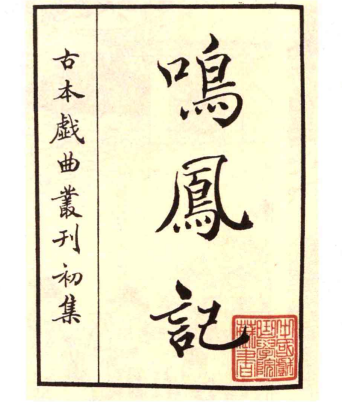 鳴鳳記
古本戯曲叢刊初集